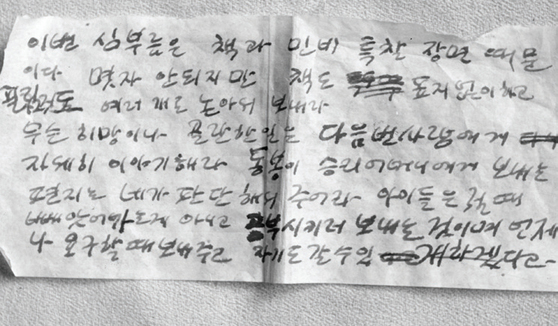 이번 심부름은 책과 민비 특찬 장면 때문
이다 몇자 안되지만 책도 표지 없이하고
필림도 여러 개로 논아서 보내라
무슨 희망이나 곤란한 일은 다음번 사람에게
자세히 이야기해라 동봉이 승리 어머니에게 보내는
편지는 네가 판단해서 주어라 아이들은 갈 때
빼앗어가는게 아니고 공부시키러 보내는 것이며 언제
나 요구할 때 보내주고 자기도 갈 수 있 개학겠다고-